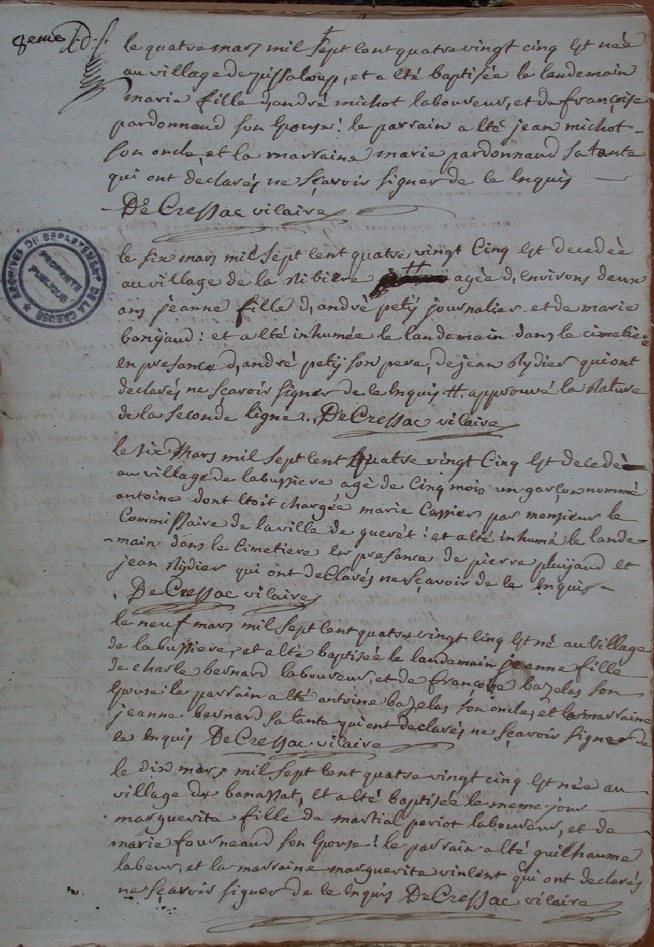 8eme
le quatre mars mil sept cent quatre vingt cinq est née
au village de et a été baptisée le landemain
marie fille d'andré michot laboureur, et de françoise
pardonnaud son epouse: le parrain a été jean michot
son oncle, et la marraine marie pardonnaud sa tante
qui ont declarés ne sçavoir signer de ce enquis
DeCressac vilaire
ARCHIVES DU DEPARTEMENT DE LA CREUSE
PROPRIETE PUBLIQUE
le six mars mil sept cent quatre vingt cinq est decedée
au village de la ribiere agée d'environs deux
ans jeanne fille d'andré petit journalier et de marie
banjaud: et a été inhumée le landemain dans le cimetiere
en presance d'andré petit son pere, de jean rydier qui ont
declarés ne sçavoir signer de ce enquis # approuvé la rature
de la seconde ligne. DeCressac vilaire
le six mars mil sept cent quatre vingt cinq est decedé
au village de labussiere agé de cinq mois un garçon nommé
antoine dont etoit chargée marie par monsieur le
Commissaire de la ville de gueret: et a été inhumé le lande-
main dans le cimetiere en presance de pierre et
jean rydier qui ont declarés ne sçavoir de ce enquis
DeCressac vilaire
le neuf mars mil sept cent quatre vingt cinq est né au village
de labussiere, et a été baptisée le landemain jeanne fille
de charle bernard laboureur, et de françoise bazelas son
epouse le parrain a été antoine bazelas son oncle, et la marraine
jeanne bernard sa tante qui ont declarés ne sçavoir signer de
ce enquis DeCressac vilaire
le dix mars mil sept cent quatre vingt cinq est née au
village de banassat, et a été baptisée le meme jour
marguerite fille de martial periot laboureur, et de
marie fourneaud son epouse! le parrain a été guilhaume
labeur, et la marraine marguerite vinlent qui ont declarés
ne sçavoir signer de ce enquis DeCressac vilaire